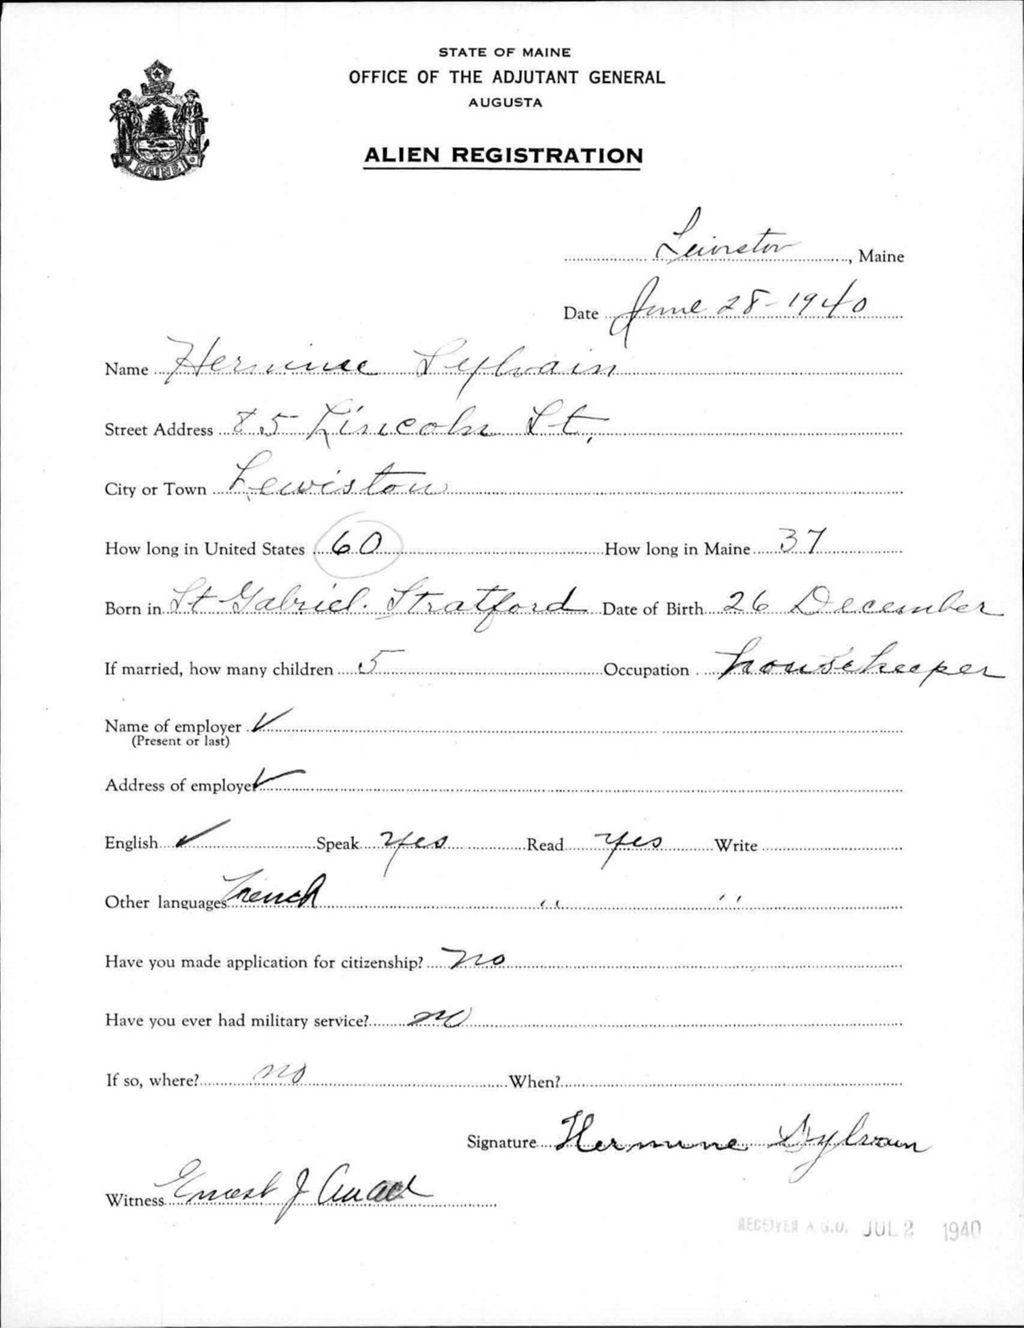 STATE OF MAINE
OFFICE OF THE ADJUTANT GENERAL
AUGUSTA
MAINE
ALIEN REGISTRATION
Lewiston, Maine
Date June 28-1940
Name Hermine Sylvain
Street Address 85 Lincoln St.
City or Town Lewiston
How long in United States 60 How long in Maine 37
Born in St Gabriel. Stratford Date of Birth 26 December
If married, how many children 5 Occupation housekeeper
Name of employer ✓
(Present or last)
Address of employer ✓
English ✓ Speak Yes Read Yes Write
Other languages French " "
Have you made application for citizenship? no
Have you ever had military service? no
If so, where? no When?
Signature Hermine Sylvain
Witness Ernest J
RECEIVED A.G.O. JUL 2 1940